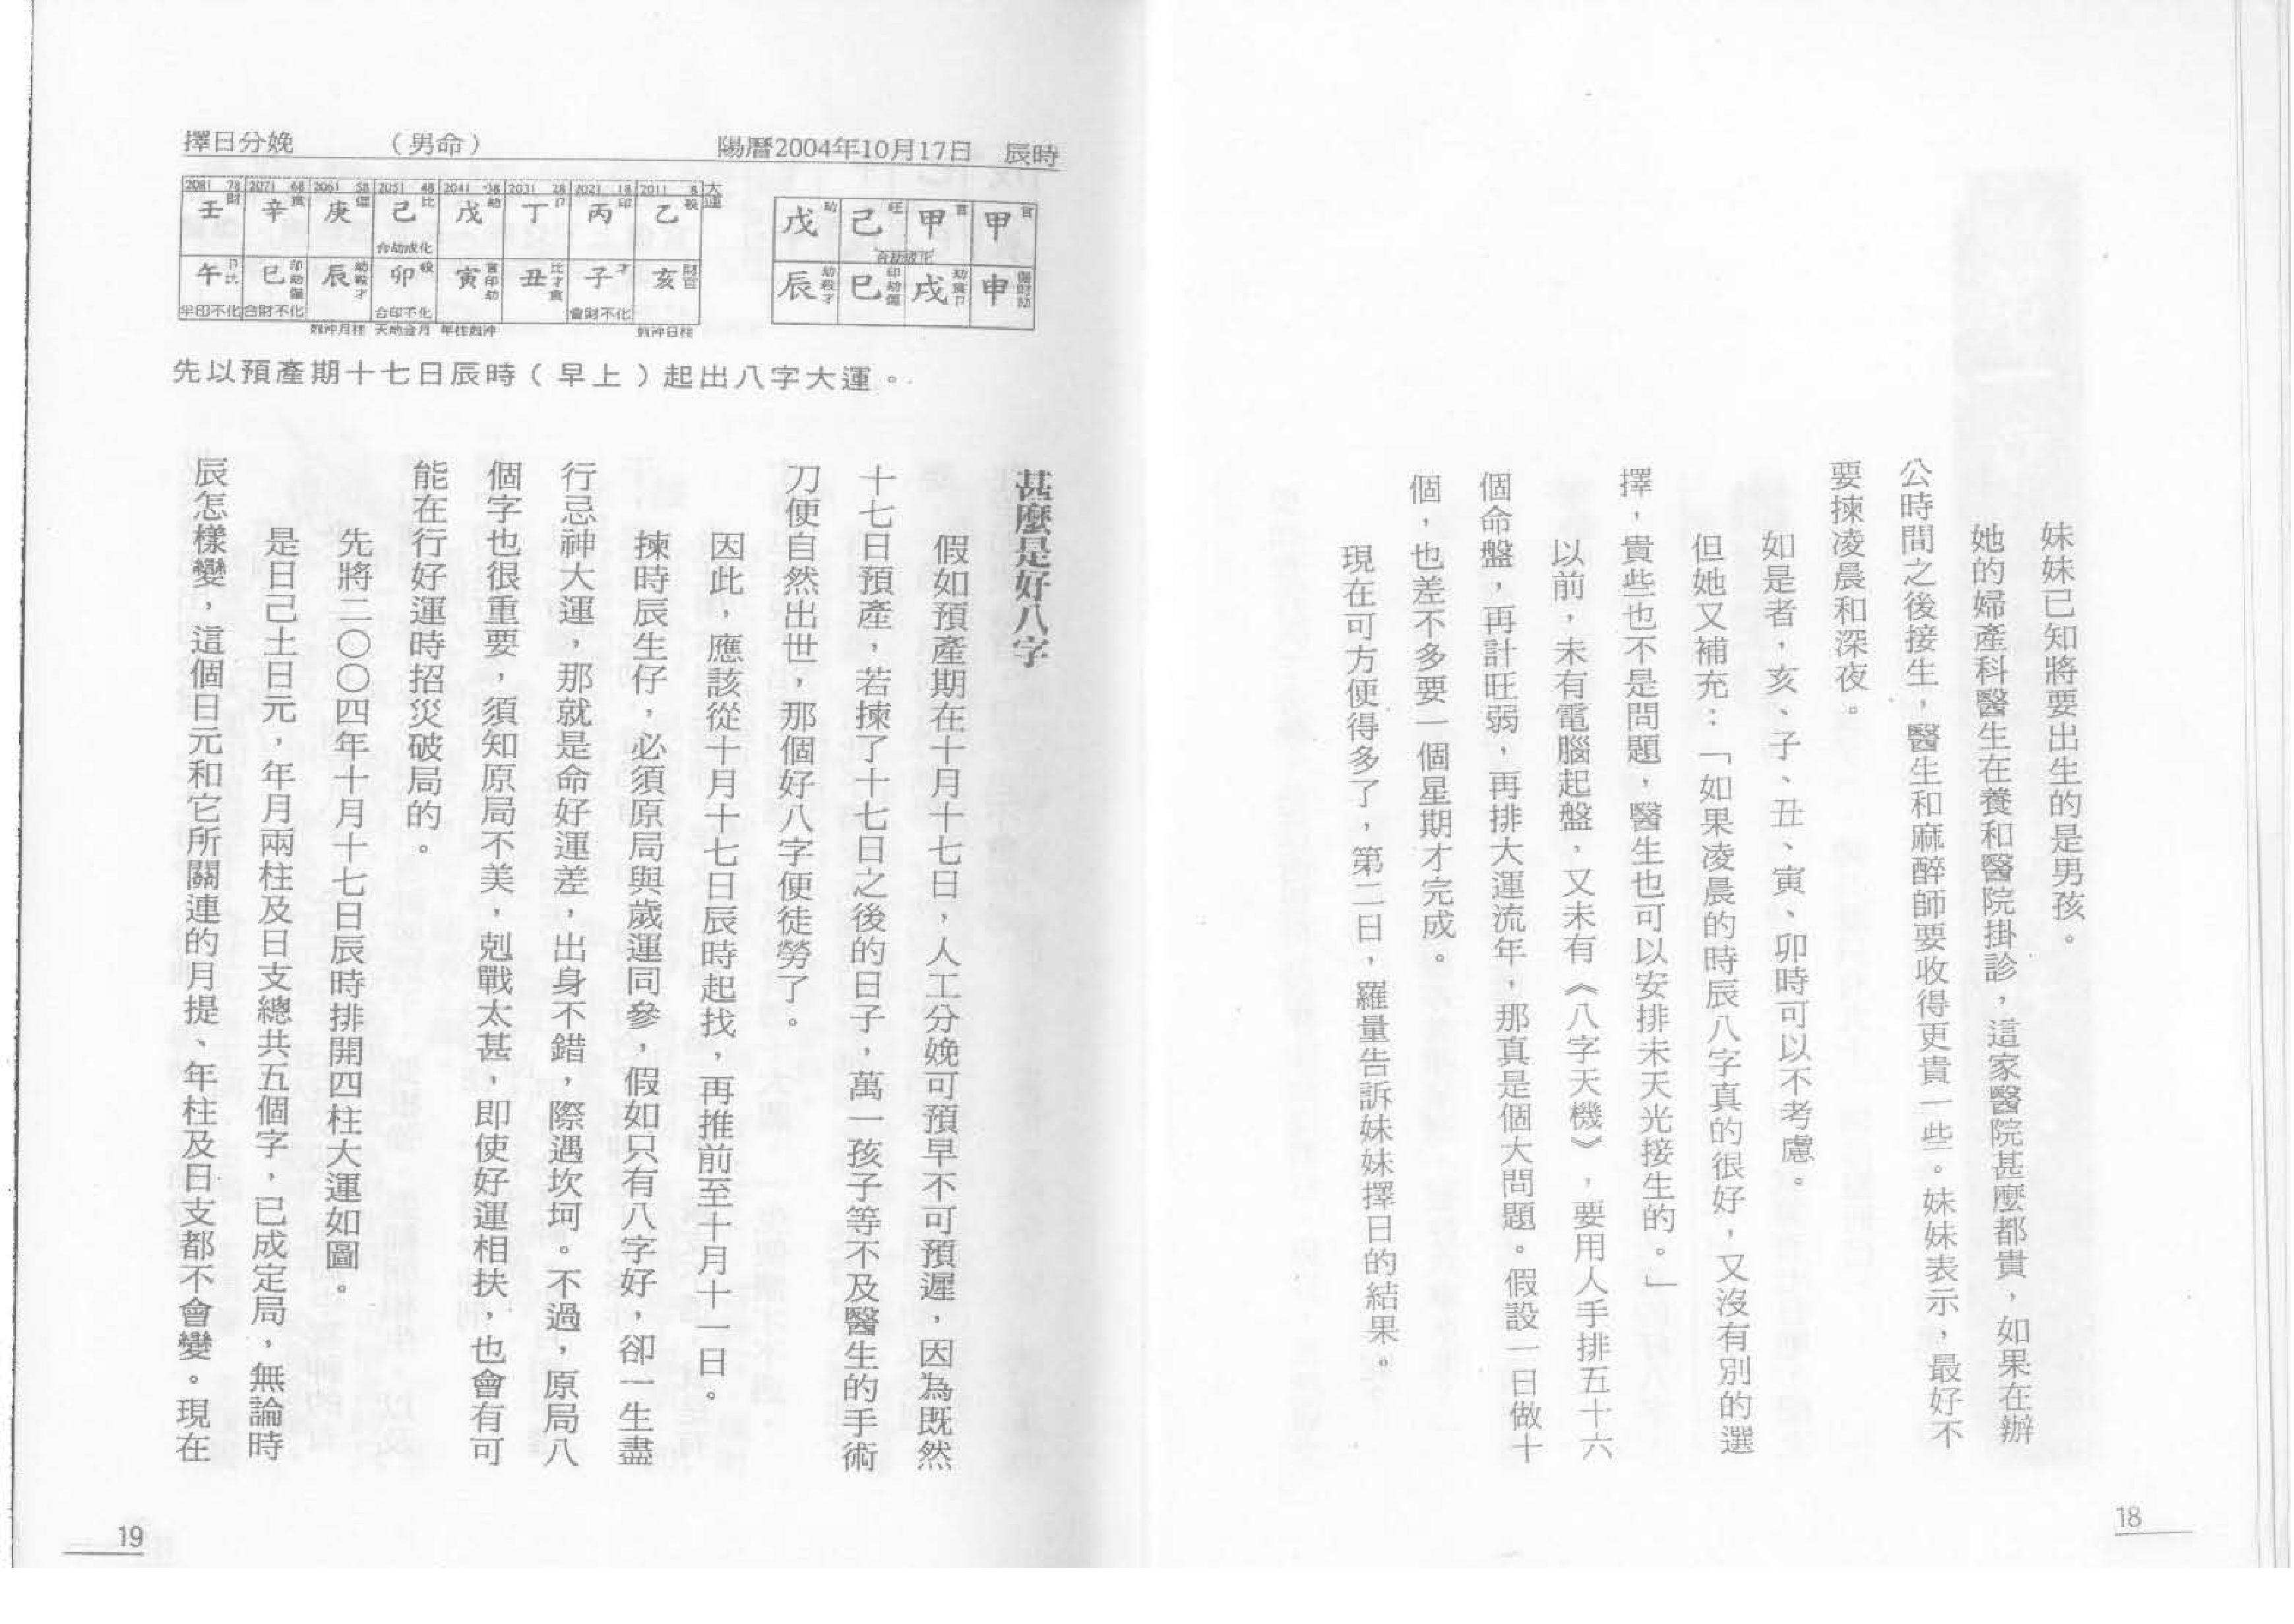 妹妹已知將要出生的是男孩。
她的婦產科醫生在養和醫院掛診，這家醫院甚麼都貴，如果在辦
公時間之後接生，醫生和麻醉師要收得更貴一些。妹妹表示，最好不
要揀凌晨和深夜。
如是者，亥、子、丑、寅、卯時可以不考慮。
但她又補充：「如果凌晨的時辰八字真的很好，又沒有別的選
擇，貴些也不是問題，醫生也可以安排未天光接生的。」
以前，未有電腦起盤，又未有《八字天機》，要用人手排五十六
個命盤，再計旺弱，再排大運流年，那真是個大問題。假設一日做十
個，也差不多要一個星期才完成。
現在可方便得多了，第二日，羅量告訴妹妹擇日的結果。
18
擇日分娩 （男命） 陽曆2004年10月17日 辰時
戊劫 己旺 甲官 甲官
合劫成化
辰劫殺才 巳印劫傷 戌劫食卩 申傷財劫
2081 78 2071 68 2061 58 2051 48 2041 38 2031 28 2021 18 2011 8 大運
壬財 辛食 庚傷 己比 戊劫 丁卩 丙印 乙殺
合劫成化
午卩比 巳印劫傷 辰劫殺才 卯殺 寅官印劫 丑比才食 子才 亥財官
半印不化 合財不化 合印不化 會財不化
尅沖月柱 天劫合月 年柱尅沖 尅沖日柱
先以預產期十七日辰時（早上）起出八字大運。
甚麼是好八字
假如預產期在十月十七日，人工分娩可預早不可預遲，因為既然
十七日預產，若揀了十七日之後的日子，萬一孩子等不及醫生的手術
刀便自然出世，那個好八字便徒勞了。
因此，應該從十月十七日辰時起找，再推前至十月十一日。
揀時辰生仔，必須原局與歲運同參，假如只有八字好，卻一生盡
行忌神大運，那就是命好運差，出身不錯，際遇坎坷。不過，原局八
個字也很重要，須知原局不美，剋戰太甚，即使好運相扶，也會有可
能在行好運時招災破局的。
先將二〇〇四年十月十七日辰時排開四柱大運如圖。
是日己土日元，年月兩柱及日支總共五個字，已成定局，無論時
辰怎樣變，這個日元和它所關連的月提、年柱及日支都不會變。現在
19